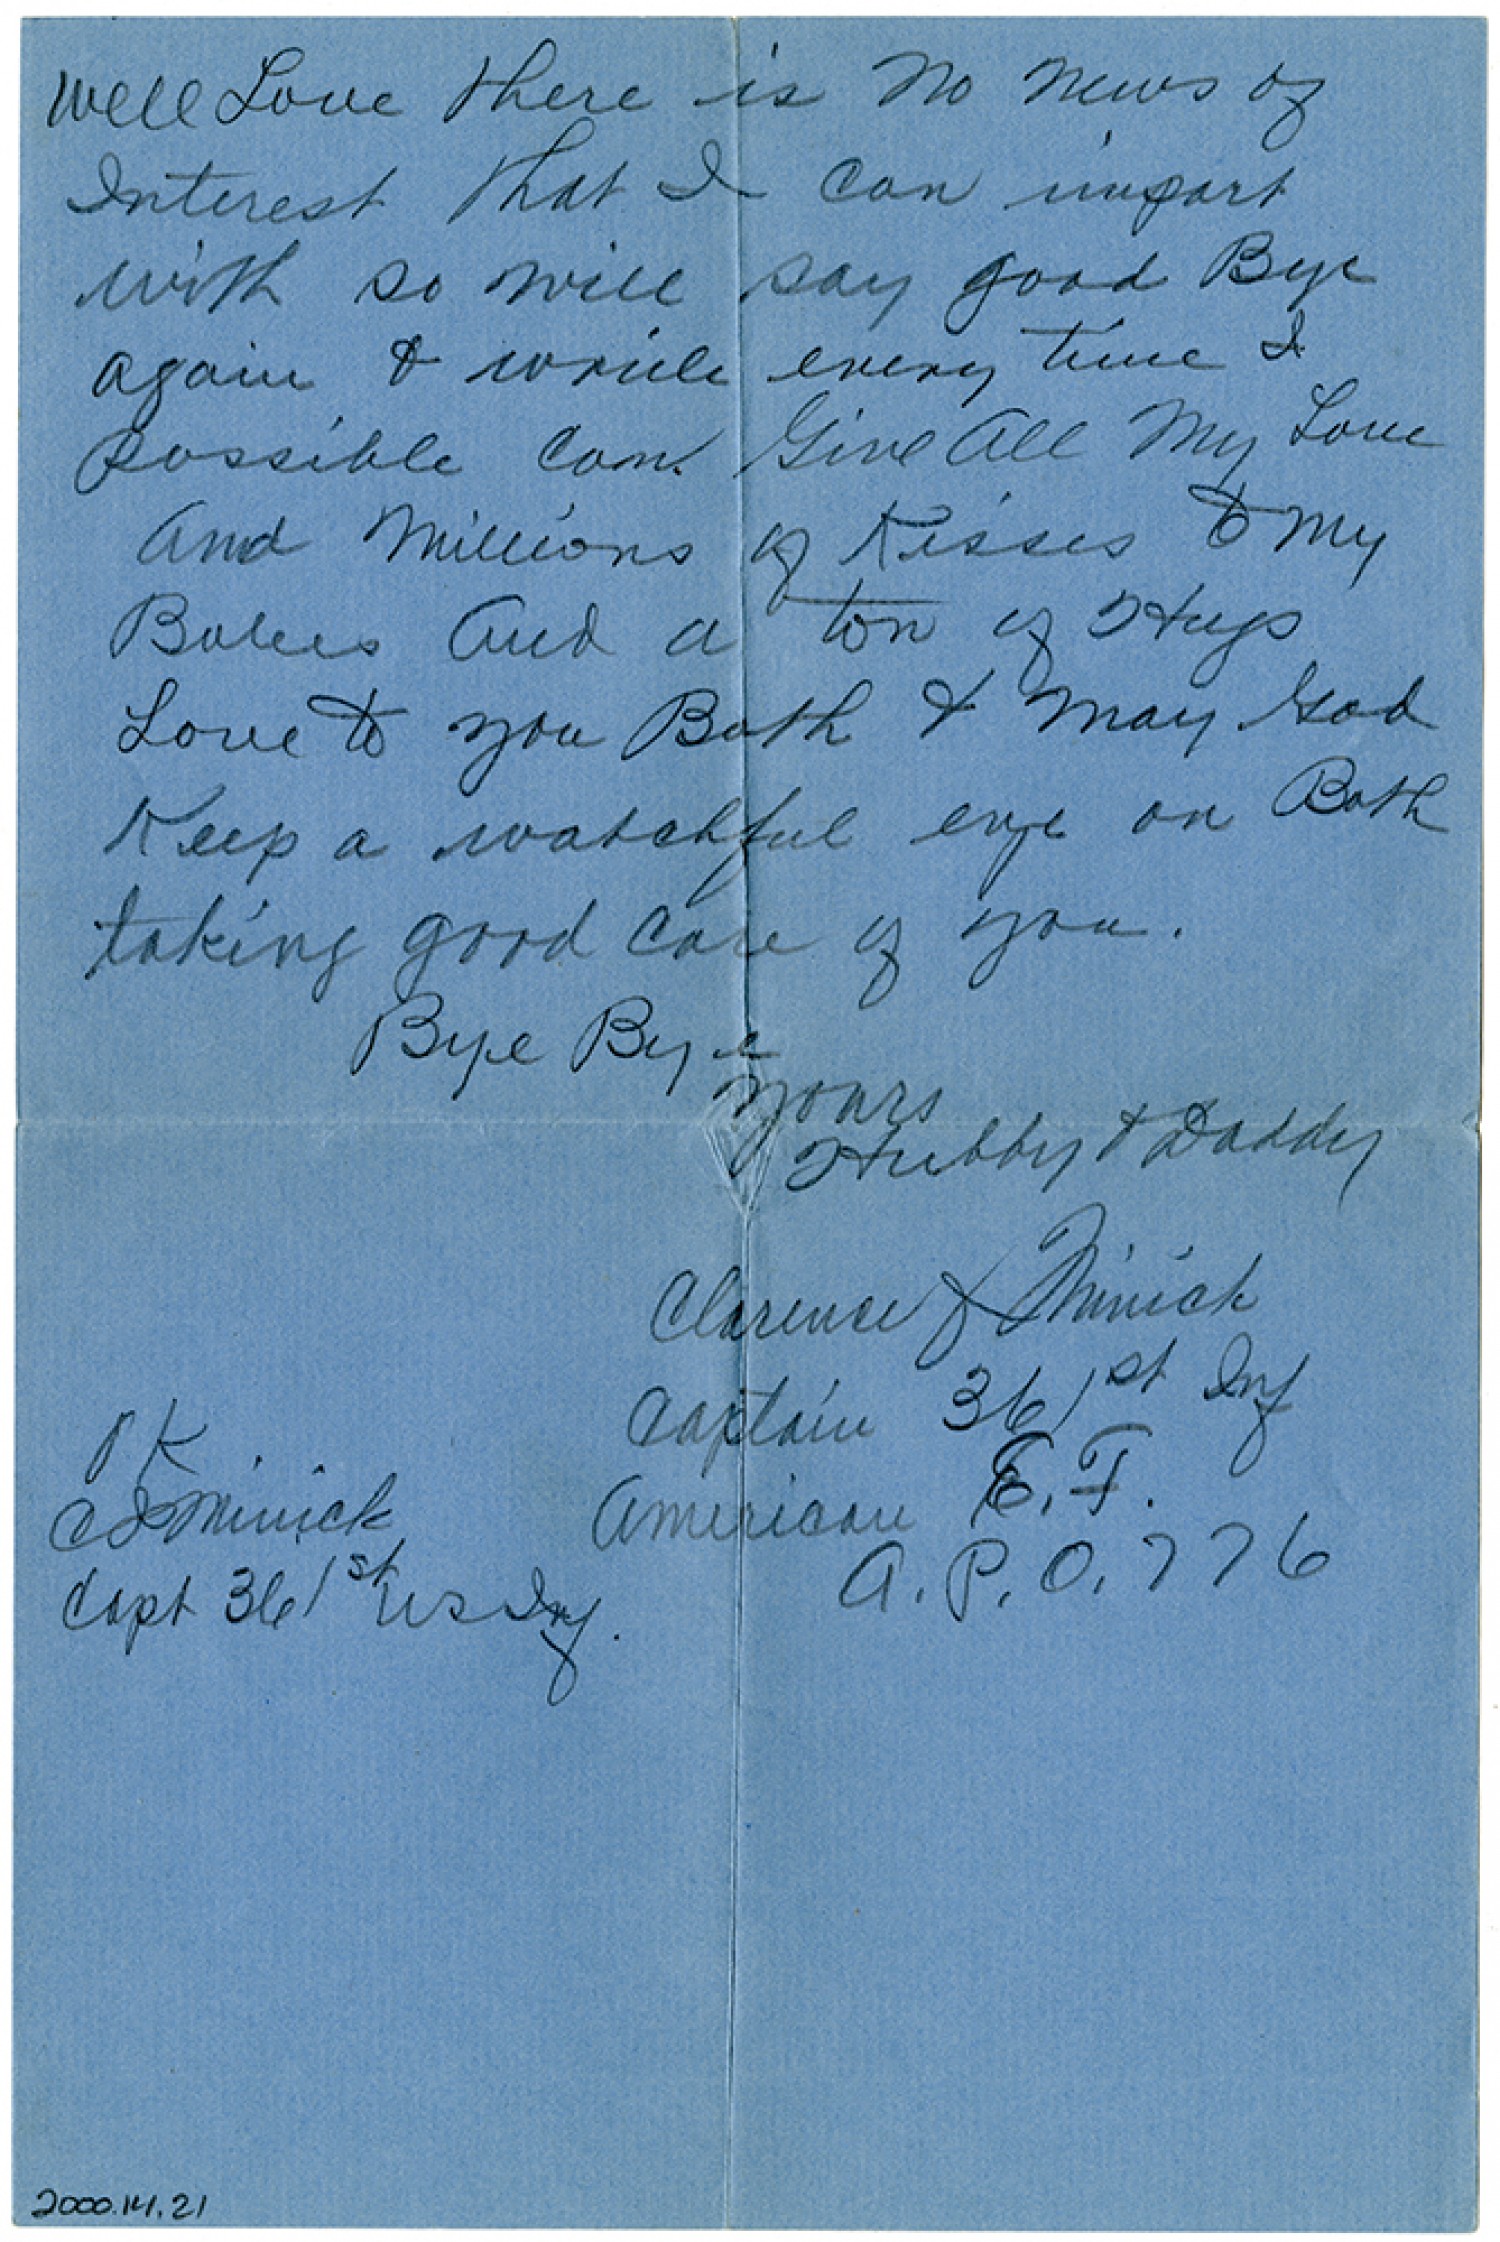 Well Love there is no news of
Interest that I can impart
with so will say good Bye
again & write every time I
possible can. Give All My Love
And Millions of Kisses to My
Babies And a ton of Hugs
Love to you Both & may God
Keep a watchful eye on Both
taking good care of you.
Bye Bye
Yours
Hubby & Daddy
Clarence J Minick
Captain 361st Inf
American E.F.
A.P.O. 776
OK
CJ Minick
Capt 361st US Inf.
2000.14.21